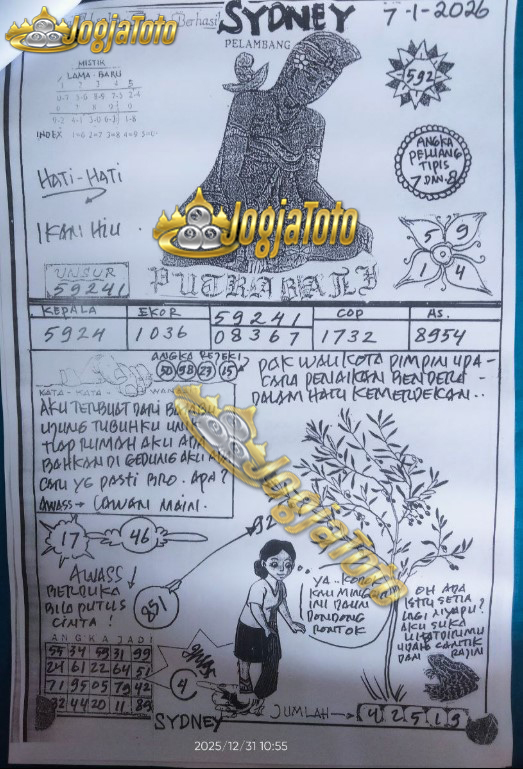 JogjaToto
Berhasil
SYDNEY
7-1-2026
PELAMBANG
MISTIK
LAMA - BARU
592
INDEX 1=6 2=7 3=8 4=9 5=0
ANGKA
PELUANG
TIPIS
7 DAN 8
HATI-HATI
IKAN HIU
JogjaToto
5 9
1 4
UNSUR
59241
PUTRA BALI
KEPALA EKOR 59241 COP AS.
5924 1036 08367 1732 8954
ANGKA REJEKI
50 98 23 15
PAK WALI KOTA PIMPIN UPA-
CARA PENAIKAN BENDERA -
DALAM HATI KEMERDEKAN..
KATA - KATA
AKU TERBUAT DARI
UJUNG TUBUHKU
TIAP RUMAH AKU ADA
BAHKAN DI GEDUNG AKU
CARI YG PASTI BRO. APA?
AWASS → LAWAN MAIN.
JogjaToto
17 46
AWASS!
BERDUKA
BILA PUTUS
CINTA!
851
YA..
KALI MINGGU
INI DAUN
DONDONG
RONTOK
OH ADA
ISTRI SETIA
LAGI NYAPU?
AKU SUKA
LIHAT DIRIMU
UDAH CANTIK
DAN RAJIN
ANGKA JADI
55 34 53 31 99
24 61 22 64 51
71 95 05 79 42
32 44 20 11 89
4
SYDNEY
JUMLAH → 4 2 5 1 9
2025/12/31 10:55